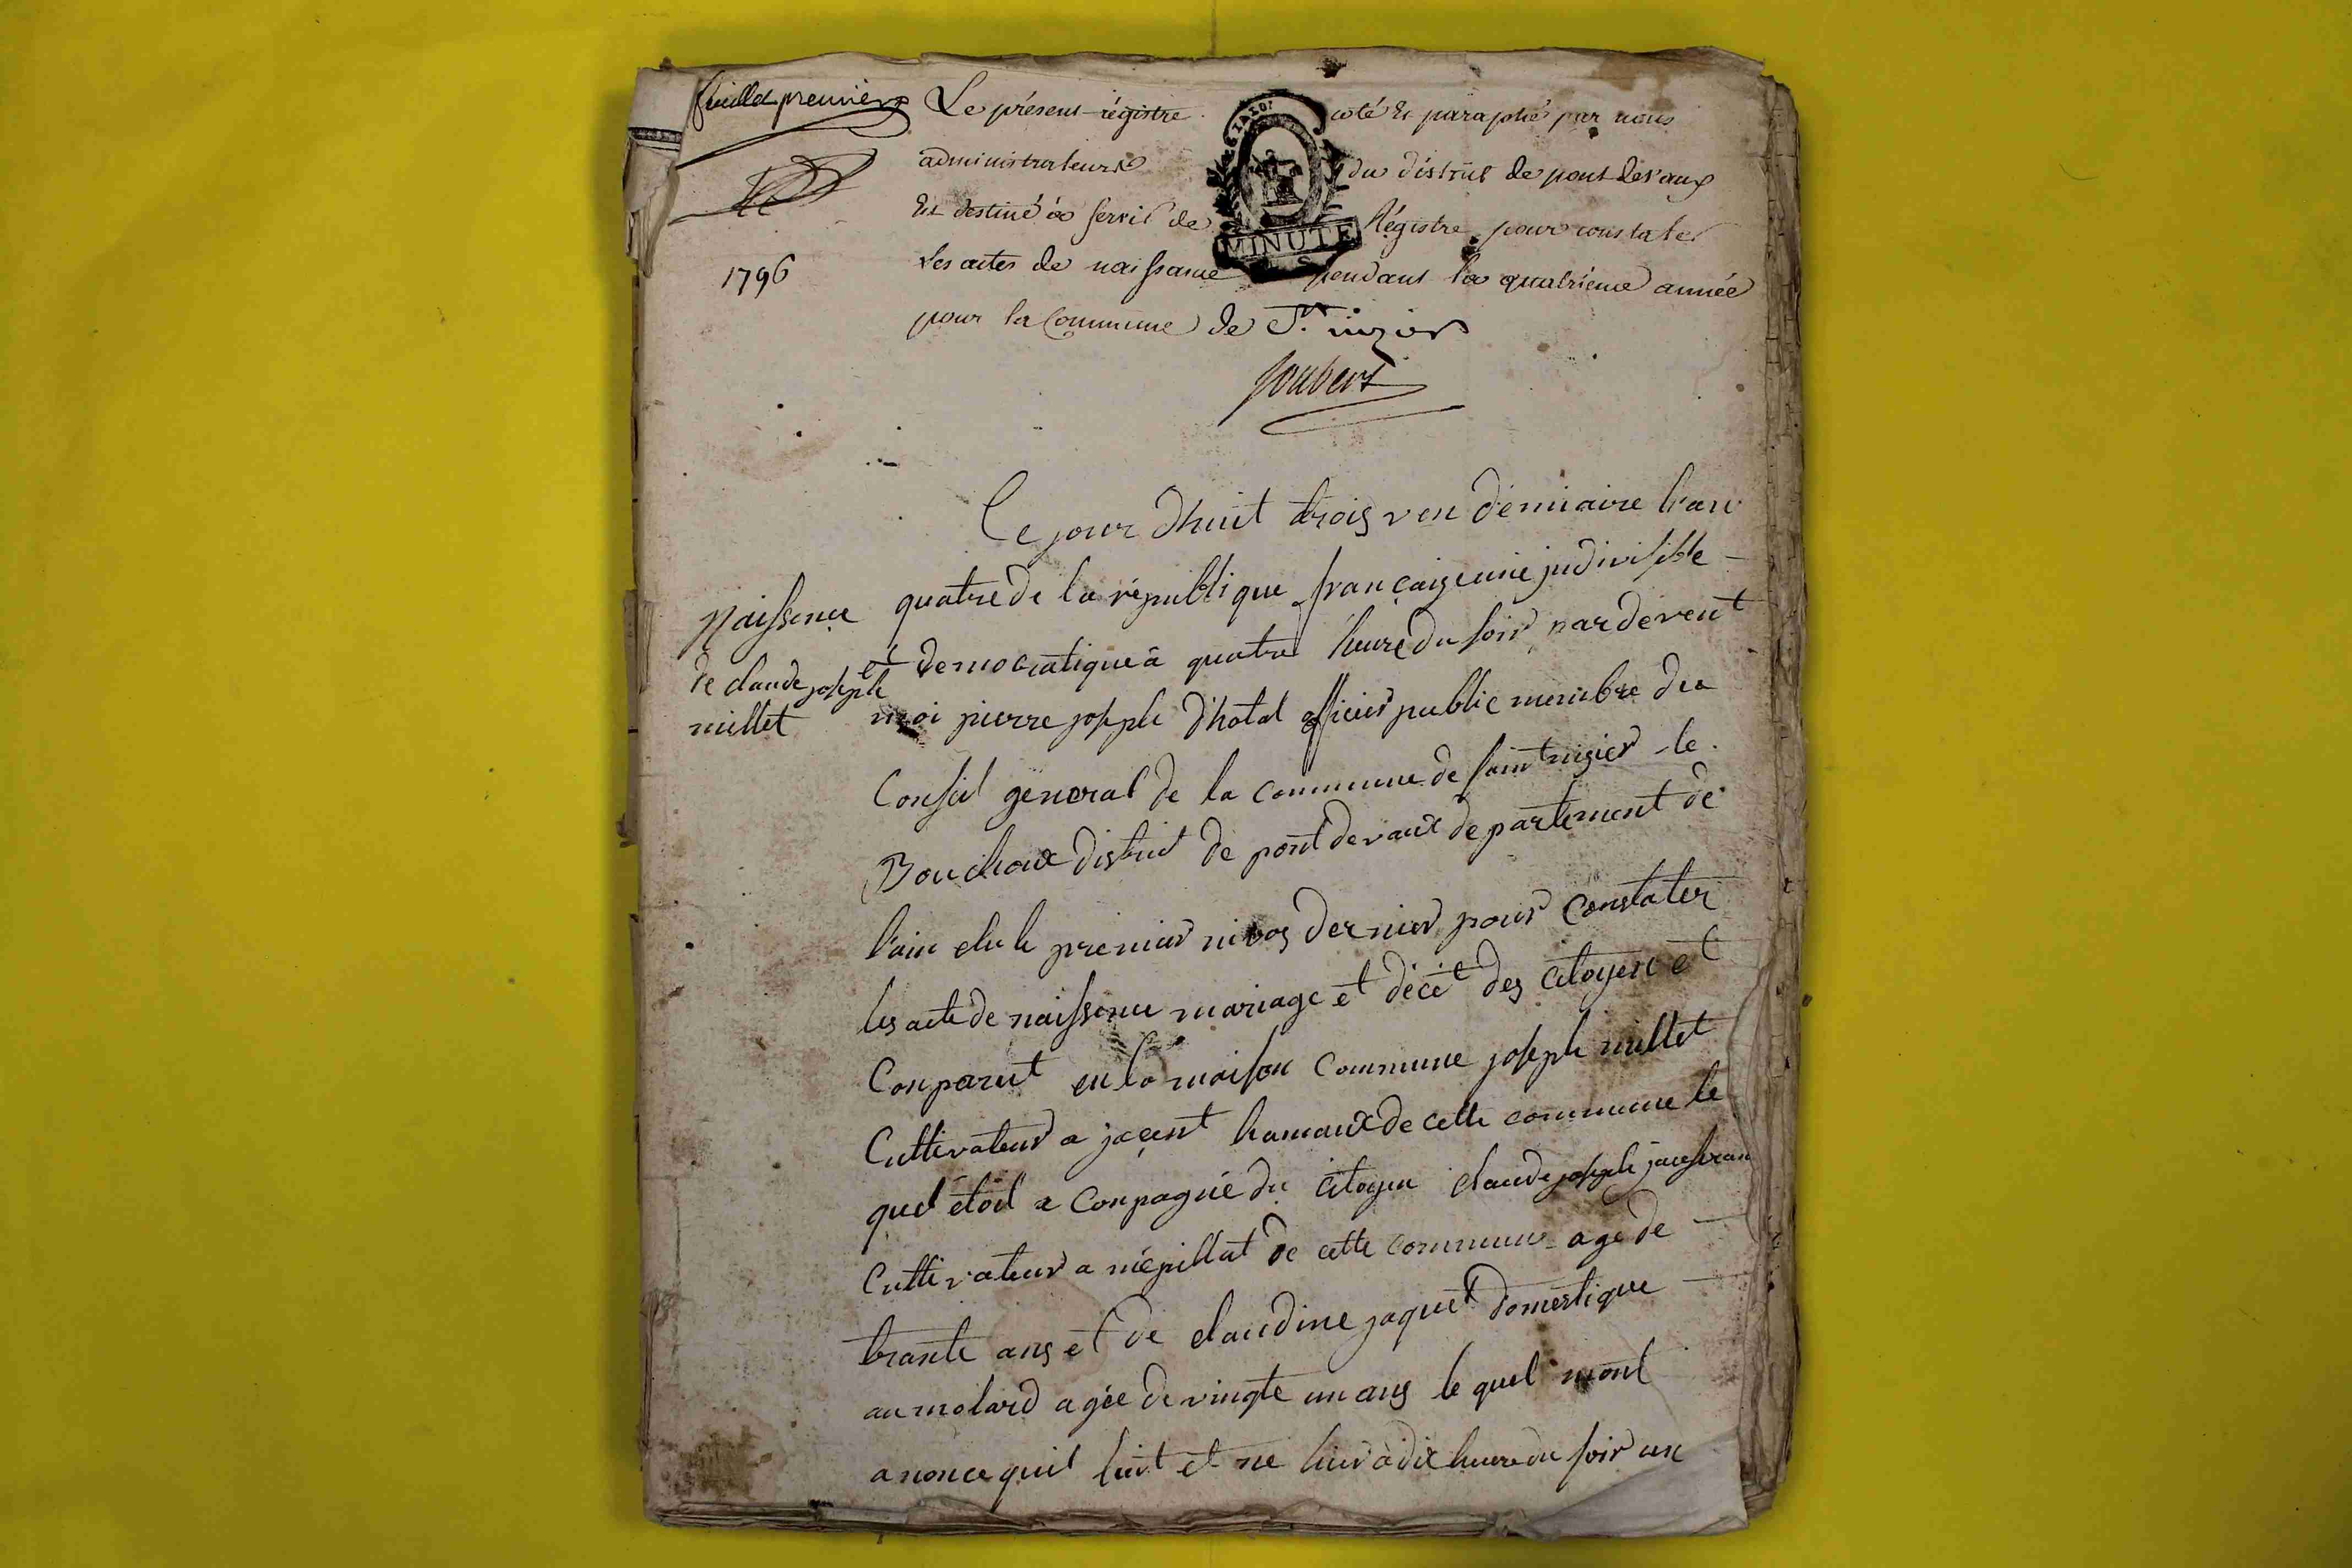 feuillet premier
Le présent régistre coté et paraphé par nous
administrateurs du district de pont devaux
Est destiné à servir de Régistre pour constater
1796
les actes de naissance pendant la quatrième année
pour la Commune de St. nizier
Joubert
MINUTE
Ce jour dhuit trois ven démiaire l'an
quatre de la république françaiseune indivisible
et democratique à quatre heure du soir pardevent
moi pierre joseph d'hotal officier public membre du
Conseil general de la commune de saint nisier le
Bouchoux district de pont devaux departement de
l'ain elu le premier nivos dernier pour constater
les acte de naissence mariage et décet des citoyen et
Conparut en la maison commune joseph millet
Cultivateur a jacent hamaux de cette commune le
quel étoit a conpagnié du citoyen claude joseph
Cultivateur a mépillat de cette commune age de
trante ans et de claudine jaquet domestique
au molard agée de vingte un ans le quel mont
anonce quil lui et né hier à dix heure du soir un
Naissence
de claude joseph
millet